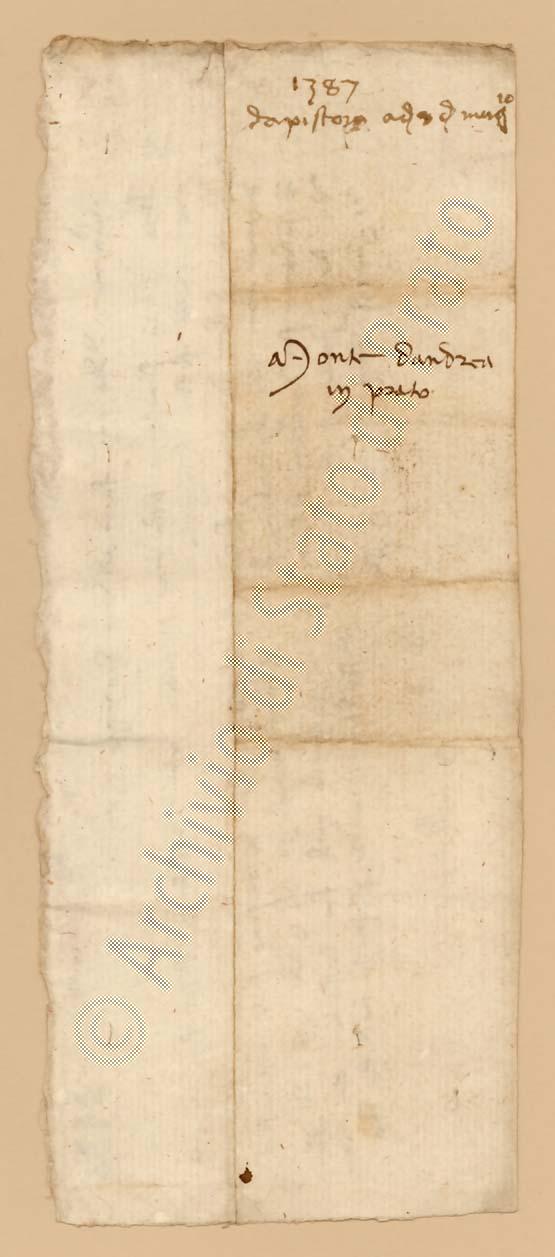 1387
da pistoia adì 9 di
a Monte dandrea
in prato
© Archivio di Stato di Prato